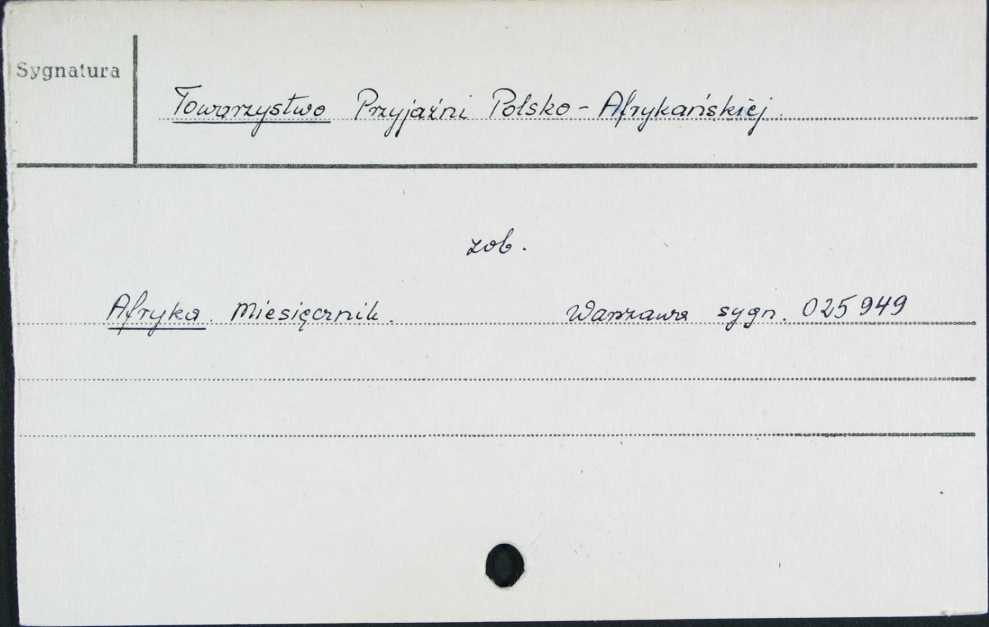 Sygnatura
Towarzystwo Przyjaźni Polsko-Afrykańskiej.
zob.
Afryka. Miesięcznik. Warszawa sygn. 025949